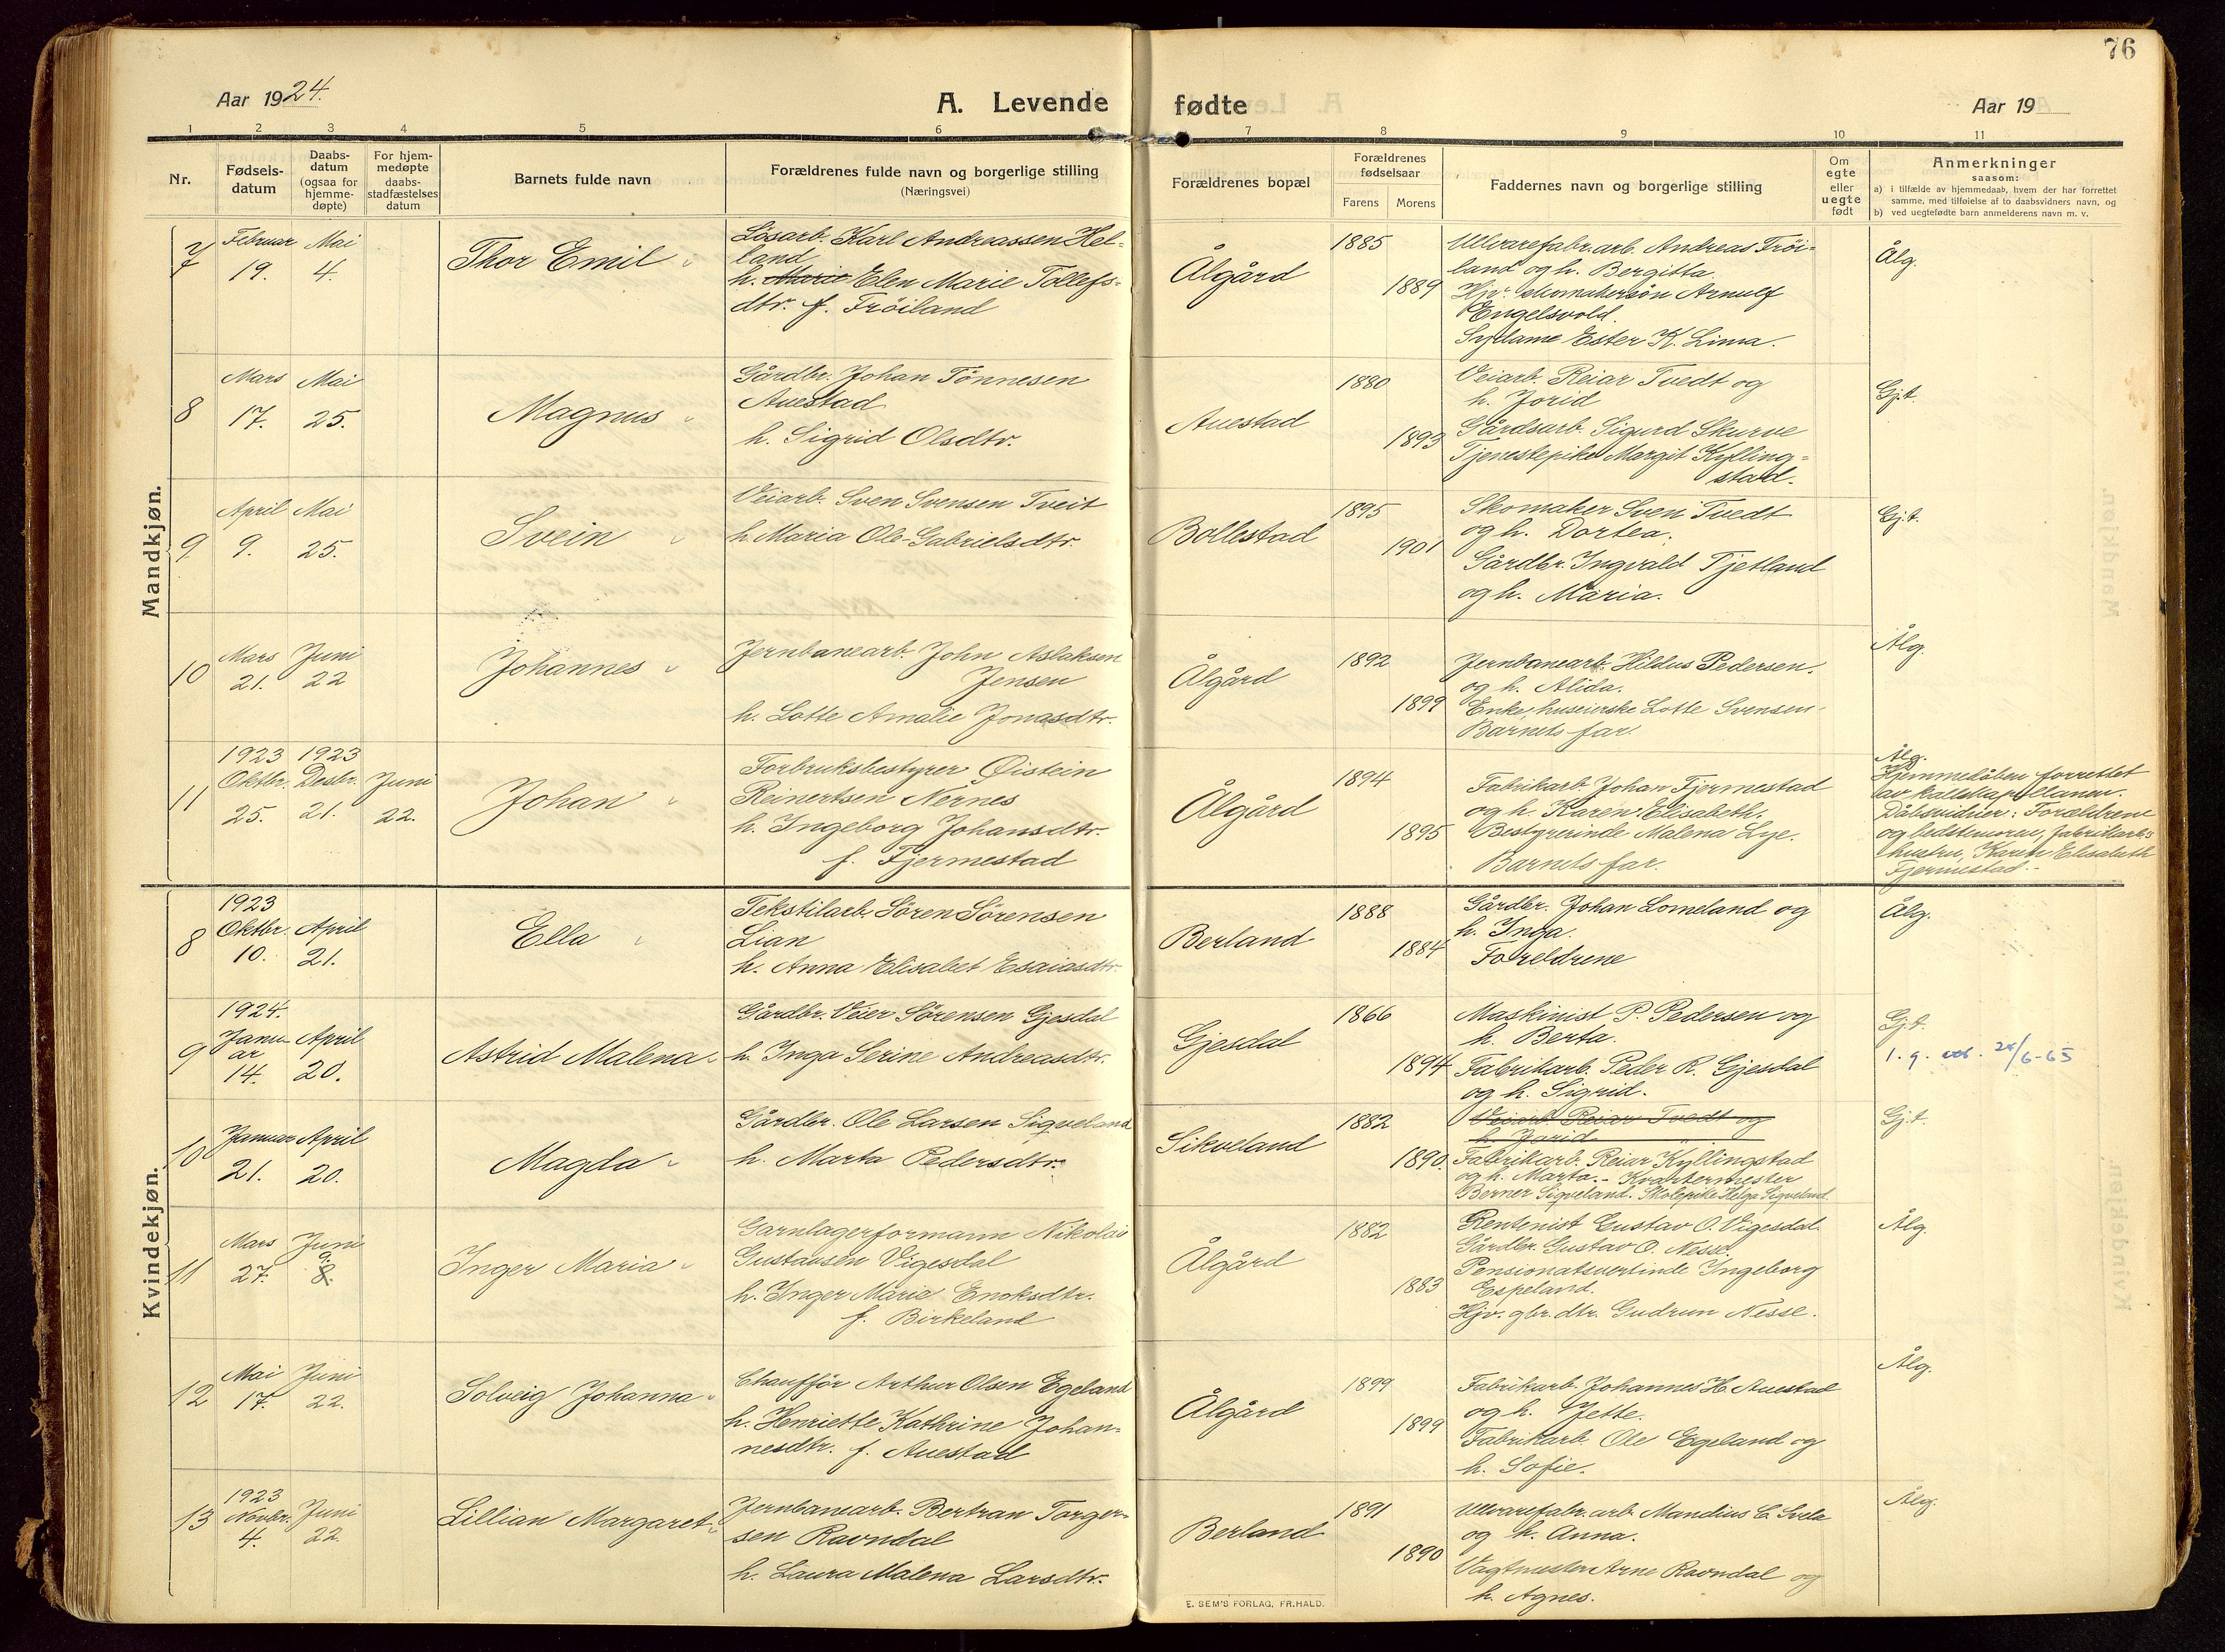 76
Aar 1924.
A. Levende
fødte
Aar 19
1 2 3 4 5 6 7 8 9 10 11
Nr.
Fødsels-
datum
Daabs-
datum
(ogsaa for
hjemme-
døpte)
For hjem-
medøpte
daabs-
stadfæstelses
datum
Barnets fulde navn
Forældrenes fulde navn og borgerlige stilling
(Næringsvei)
Forældrenes bopæl
Forældrenes
fødselsaar
Farens Morens
Faddernes navn og borgerlige stilling
Om
egte
eller
uegte
født
Anmerkninger
saasom:
a) i tilfælde av hjemmedaab, hvem der har forrettet
samme, med tilføielse af to daabsvidners navn, og
b) ved uegtefødte barn anmelderens navn m. v.
Mandkjøn.
7
Februar Mai
19. 4.
Thor Emil
Løsarb. Karl Andreassen Hel-
land
h. Marie Elen Marie Tollefs-
dtr. f. Frøiland
Ålgård
1885
1889
Ullvarefabr.arb. Andreas Frøi-
land og h. Bergitta.
Hjv. skomakersøn Arnulf
Engelsvold.
Sydame Ester K. Lima.
Ålg.
8
Mars Mai
17. 25.
Magnus
Gårdbr. Johan Tønnesen
Auestad
h. Sigrid Olsdtr.
Auestad
1880
1893
Veiarb. Reiar Tvedt og
h. Jorid
Gårdsarb. Sigurd Skurve
Tjenestepike Margit Kylling-
stad.
Gj.t.
9
April Mai
9. 25.
Svein
Veiarb. Sven Svensen Tveit
h. Maria Ole-Gabrielsdtr.
Bollestad
1895
1901
Skomaker Sven Tvedt
og h. Dortea.
Gårdbr. Ingvald Tjetland
og h. Maria.
Gj.t.
10
Mars Juni
21. 22
Johannes
Jernbanearb. John Aslaksen
Jensen
h. Lotte Amalie Jonasdtr.
Ålgård
1892
1899
Jernbanearb. Hildus Pedersen.
og h. Alida.
Enke, huseierske Lotte Svensen
Barnets far.
Ålg.
11
1923 1923
Oktbr. Desbr. Juni
25. 21. 22.
Johan
Forbruksbestyrer Øistein
Reinertsen Nernes
h. Ingeborg Johansdtr.
f. Fjermestad
Ålgård
1894
1895
Fabrikarb. Johan Fjermestad
og h. Karen Elisabeth.
Bestyrerinde Malena Lye.
Barnets far.
Ålg.
Hjemmedåben forrettet
av kallskapellanen.
Dåbsvidner: Forældrene
og bedstemoren, fabrikarb.s
hustru, Karen Elisabeth
Fjermestad.
Kvindekjøn.
8
1923
Oktbr. April
10. 21.
Ella
Tekstilarb. Søren Sørensen
Lian
h. Anna Elisabet Esaiasdtr.
Berland
1888
1884
Gårdbr. Johan Lomeland og
h. Inga.
Foreldrene
Ålg.
9
1924.
Janu- April
ar
14. 20.
Astrid Malena
Gårdbr. Veier Sørensen Gjesdal
h. Inga Serine Andreasdtr.
Gjesdal
1866
1894
Maskinist P. Pedersen og
h. Berta.
Fabrikarb. Peder R. Gjesdal
og h. Sigrid.
Gj.t.
10
Januar April
21. 20.
Magda
Gårdbr. Ole Larsen Sigveland
h. Marta Pedersdtr.
Sikveland
1882
1890.
Veiarb. Reiar Tvedt og
h. Jorid
Fabrikarb. Reiar Kyllingstad
og h. Marta. - Kvartermester
Berner Sigveland. Skolepike Helga Sigveland
Gj.t.
11
Mars Juni
27. 9. 8.
Inger Maria
Garnlagerformann Nikolai
Gustavsen Vigesdal
h. Inger Marie Enoksdtr.
f. Birkeland
Ålgård
1882
1883
Rentenist Gustav O. Vigesdal
Gårdbr. Gustav O. Nesse.
Pensionatsvertinde Ingeborg
Espeland.
Hjv. gbr. dtr. Gudrun Nesse.
Ålg.
12
Mai Juni
17. 22.
Solveig Johanna
Chauffør Arthur Olsen Egeland
h. Henriette Kathrine Johan-
nesdtr. f. Auestad
Ålgård
1899
1899
Fabrikarb. Johannes H. Auestad
og h. Jette.
Fabrikarb. Ole Egeland og
h. Sofie.
Ålg.
13
1923
Novbr. Juni
4. 22.
Lillian Margaret
Jernbanearb. Bertran Torger-
sen Ravndal
h. Laura Malena Larsdtr.
Berland
1891
1890
Ullvarefabr.arb. Mandius E. Svela
og h. Anna.
Vagtmester Arne Ravndal og
h. Agnes.
Ålg.
E. SEM'S FORLAG, FR.HALD.